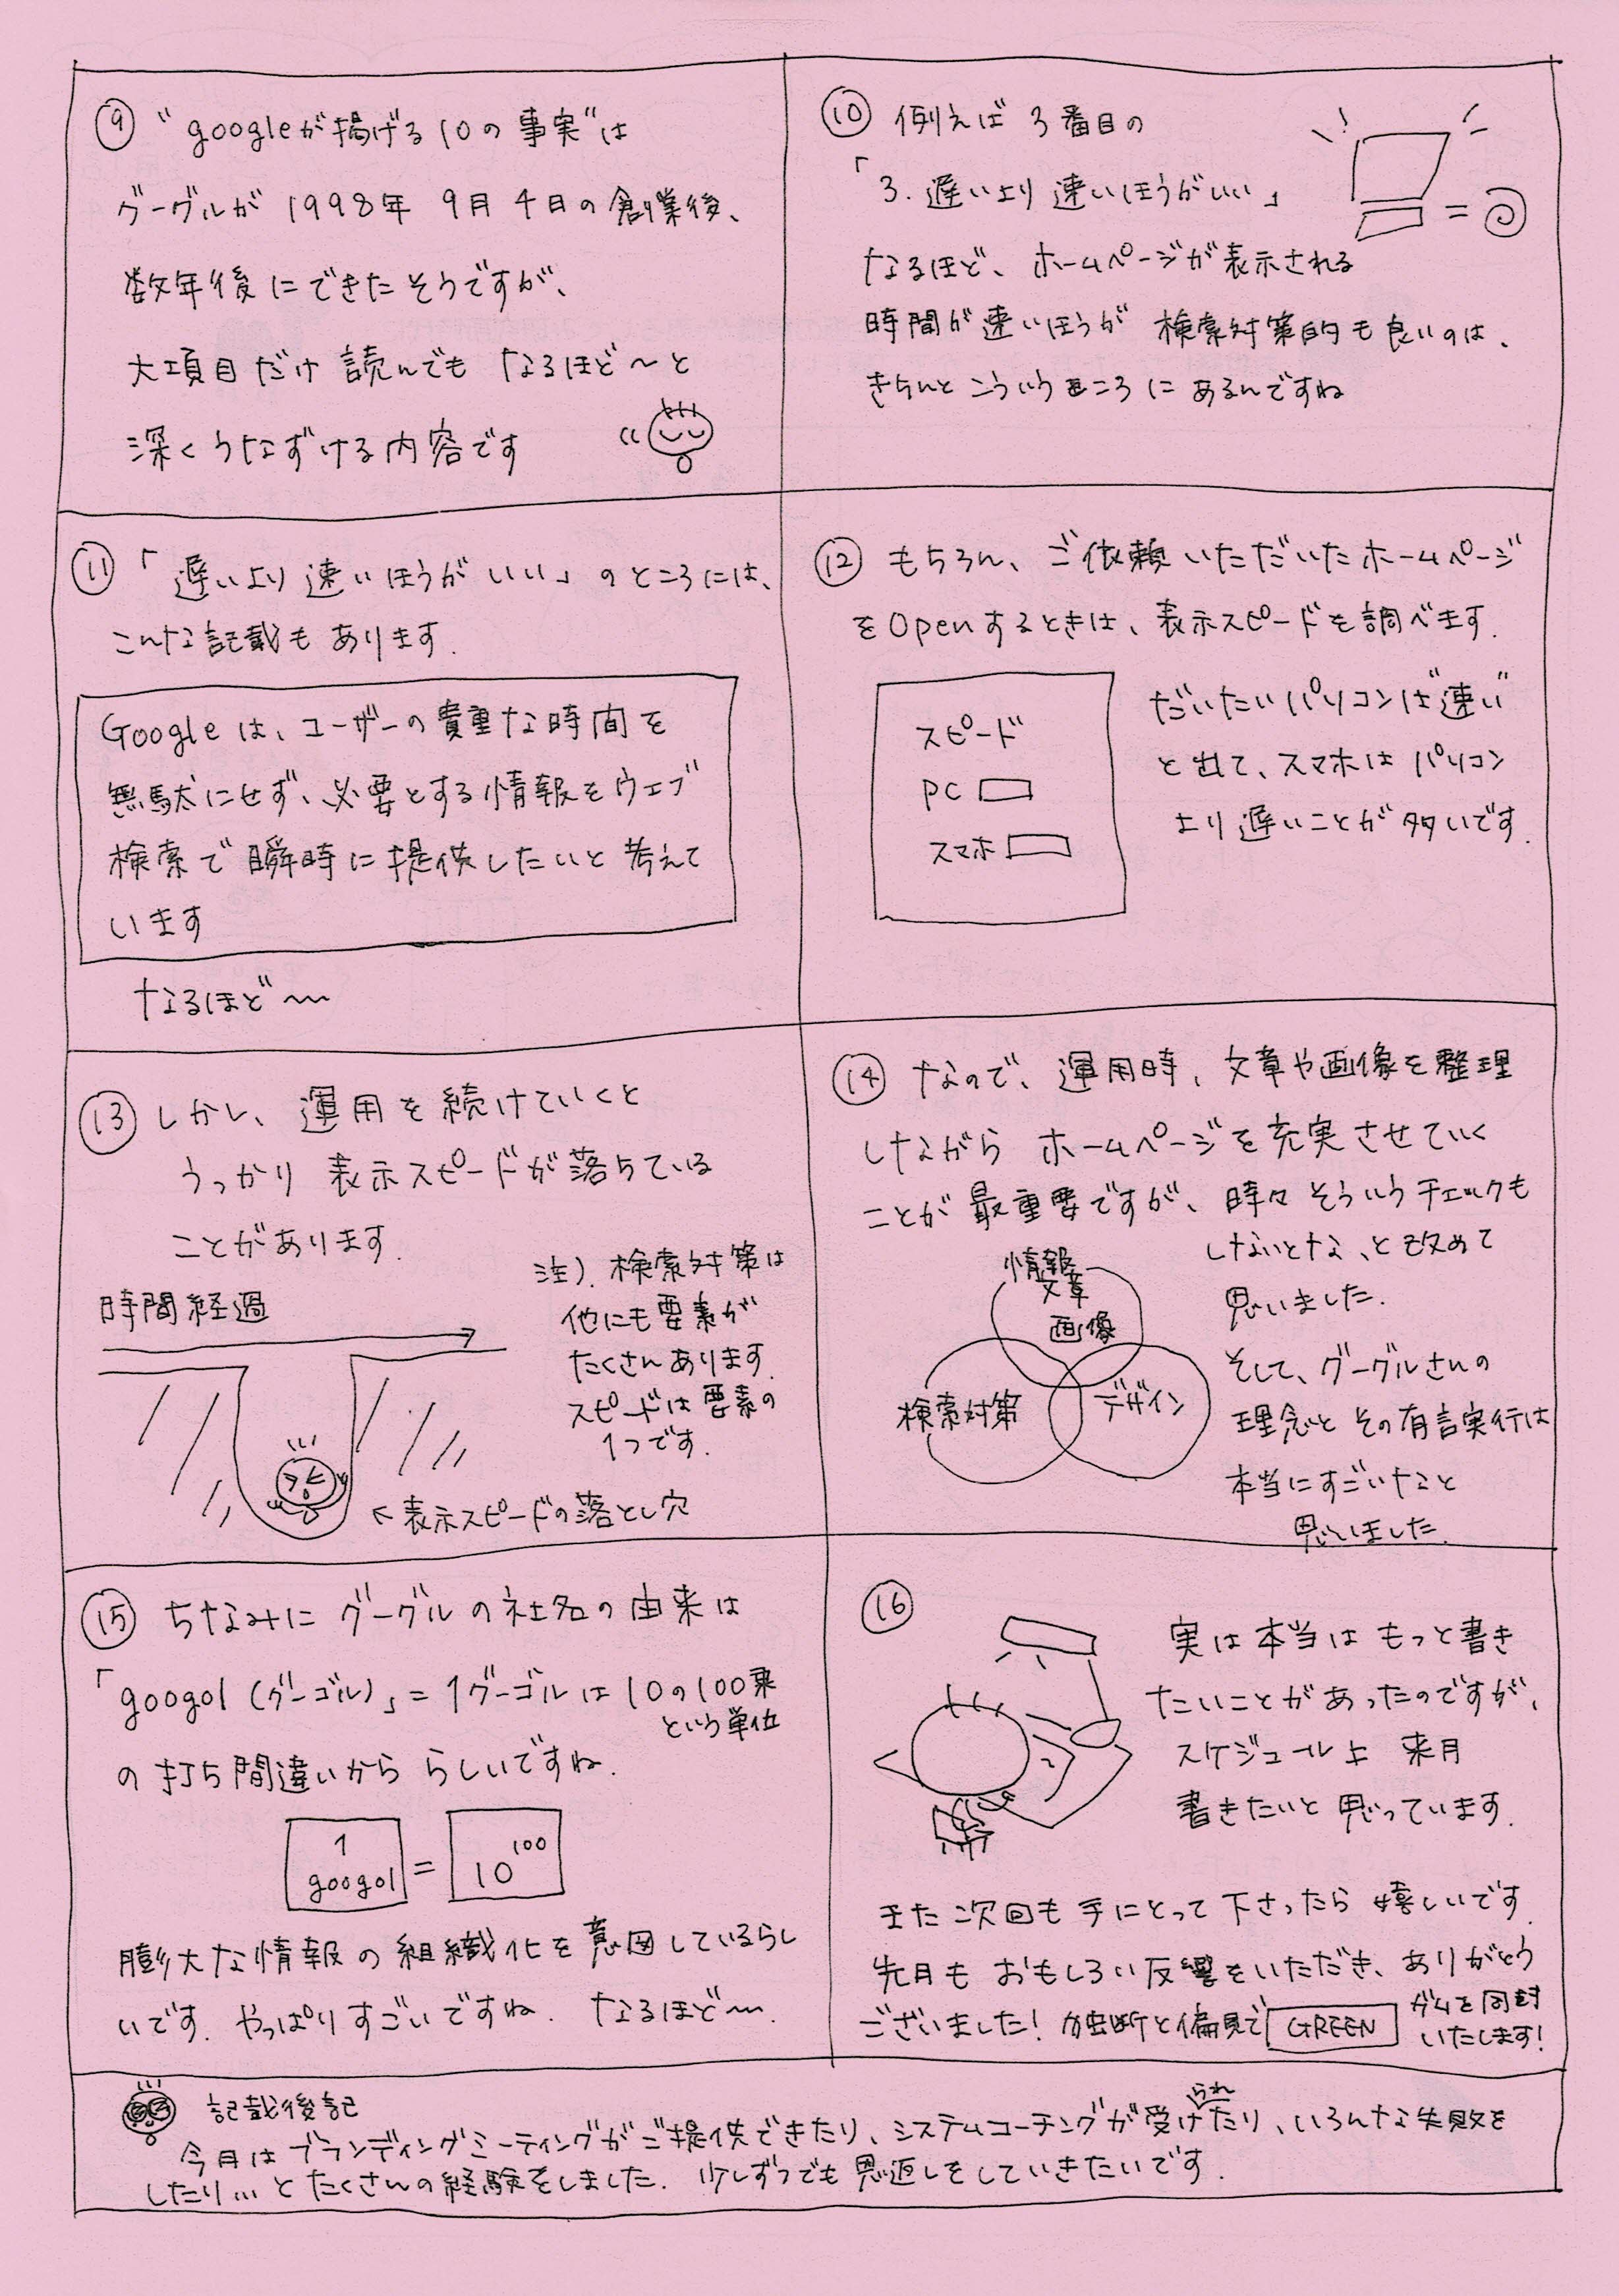 ⑨ “googleが掲げる10の事実”は
グーグルが 1998年 9月4日の創業後、
数年後にできたそうですが、
大項目だけ 読んでも なるほど〜と
深くうなずける内容です
⑩ 例えば 3番目の
「3. 遅いより 速いほうがいい」
なるほど、ホームページが表示される
時間が速いほうが 検索対策的も良いのは、
きちんと こういうところに あるんですね
⑪ 「遅いより 速いほうが いい」のところには、
こんな記載も あります.
Google は、ユーザーの貴重な時間を
無駄にせず、必要とする情報をウェブ
検索で瞬時に提供したいと 考えて
います
なるほど〜
⑫ もちろん、ご依頼 いただいた ホームページ
をOpenするときは、表示スピードを調べます.
だいたいパソコンは“速い”
と出て、スマホは パソコン
より 遅いことが多いです.
スピード
PC
スマホ
⑬ しかし、運用を続けていくと
うっかり 表示スピードが落ちている
ことがあります.
注). 検索対策は
他にも要素が
たくさんあります.
スピードは要素の
1つです.
時間経過
←表示スピードの落とし穴
⑭ なので、運用時、文章や画像を整理
しながら ホームページを充実させていく
ことが 最重要ですが、時々 そういうチェックも
しないとな、と改めて
思いました.
そして、グーグルさんの
理念と その有言実行は
本当にすごいなと
思いました.
情報
文章
画像
検索対策
デザイン
⑮ ちなみに グーグルの社名の由来は
「googol (グーゴル)」= 1グーゴルは 10の100乗
という単位
の打ち間違いから らしいですね.
1
googol
=
10^100
膨大な情報の組織化を意図しているらし
いです. やっぱりすごいですね. なるほど〜.
⑯
実は本当は もっと書き
たいことがあったのですが、
スケジュール上 来月
書きたいと思っています.
また次回も 手にとって 下さったら 嬉しいです.
先月も おもしろい反響をいただき、ありがとう
ございました! 独断と偏見で GREEN ガムを同封
いたします!
記載後記
今月は ブランディングミーティングがご提供できたり、システムコーチングが受けられたり、いろんな失敗を
したり... と たくさんの経験をしました. 少しずつでも 恩返しをしていきたいです.